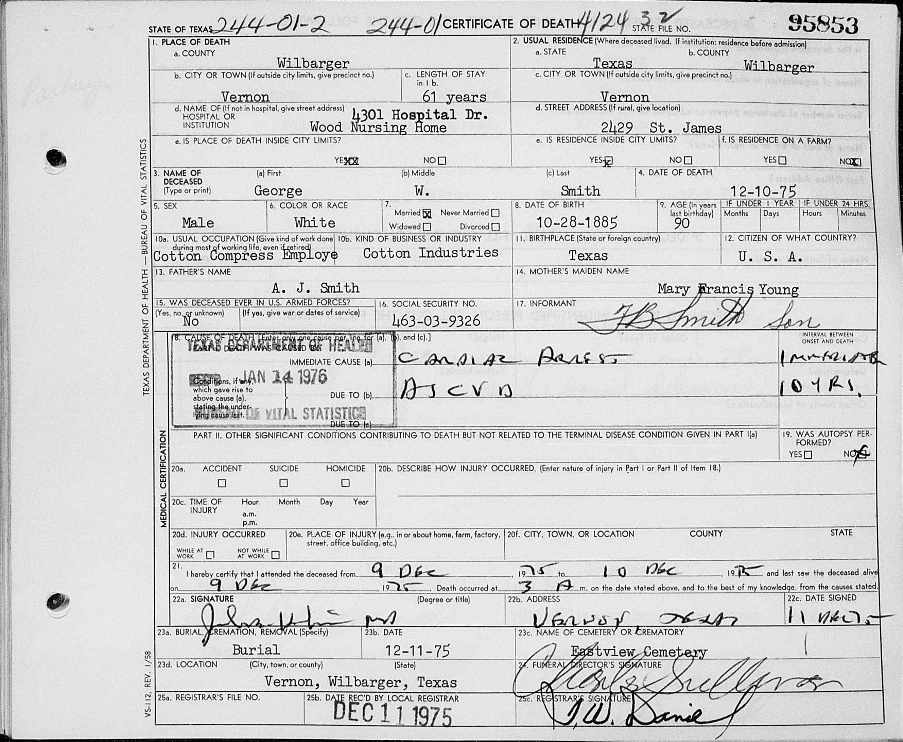 STATE OF TEXAS 244-01-2 244-01 CERTIFICATE OF DEATH 4124 32 STATE FILE NO. 95853
1. PLACE OF DEATH
a. COUNTY
Wilbarger
2. USUAL RESIDENCE (Where deceased lived. If institution: residence before admission)
a. STATE
Texas
b. COUNTY
Wilbarger
b. CITY OR TOWN (If outside city limits, give precinct no.)
Vernon
c. LENGTH OF STAY in 1 b.
61 years
c. CITY OR TOWN (If outside city limits, give precinct no.)
Vernon
d. NAME OF (If not in hospital, give street address)
HOSPITAL OR
INSTITUTION
4301 Hospital Dr.
Wood Nursing Home
d. STREET ADDRESS (If rural, give location)
2429 St. James
e. IS PLACE OF DEATH INSIDE CITY LIMITS?
YES XX NO
e. IS RESIDENCE INSIDE CITY LIMITS?
YES X NO
f. IS RESIDENCE ON A FARM?
YES NO X
3. NAME OF DECEASED (Type or print)
(a) First
George
(b) Middle
W.
(c) Last
Smith
4. DATE OF DEATH
12-10-75
5. SEX
Male
6. COLOR OR RACE
White
7.
Married X Never Married
Widowed Divorced
8. DATE OF BIRTH
10-28-1885
9. AGE (In years last birthday)
90
IF UNDER 1 YEAR
Months Days
IF UNDER 24 HRS.
Hours Minutes
10a. USUAL OCCUPATION (Give kind of work done
during most of working life, even if retired)
Cotton Compress Employe
10b. KIND OF BUSINESS OR INDUSTRY
Cotton Industries
11. BIRTHPLACE (State or foreign country)
Texas
12. CITIZEN OF WHAT COUNTRY?
U. S. A.
13. FATHER'S NAME
A. J. Smith
14. MOTHER'S MAIDEN NAME
Mary Francis Young
15. WAS DECEASED EVER IN U.S. ARMED FORCES?
(Yes, no, or unknown) (If yes, give war or dates of service)
No
16. SOCIAL SECURITY NO.
463-03-9326
17. INFORMANT
F B Smith Son
18. CAUSE OF DEATH [Enter only one cause per line for (a), (b), and (c).]
PART I. DEATH WAS CAUSED BY:
TEXAS DEPARTMENT OF HEALTH
JAN 14 1976
BUREAU OF VITAL STATISTICS
IMMEDIATE CAUSE (a) CARDIAC ARREST
INTERVAL BETWEEN ONSET AND DEATH
IMMEDIATE
Conditions, if any,
which gave rise to
above cause (a),
stating the under-
lying cause last.
DUE TO (b) ASCVD
10 YRS.
DUE TO (c)
PART II. OTHER SIGNIFICANT CONDITIONS CONTRIBUTING TO DEATH BUT NOT RELATED TO THE TERMINAL DISEASE CONDITION GIVEN IN PART I(a)
19. WAS AUTOPSY PERFORMED?
YES NO
20a. ACCIDENT SUICIDE HOMICIDE
20b. DESCRIBE HOW INJURY OCCURRED. (Enter nature of injury in Part I or Part II of Item 18.)
20c. TIME OF INJURY
Hour Month Day Year
a.m.
p.m.
20d. INJURY OCCURRED
WHILE AT WORK NOT WHILE AT WORK
20e. PLACE OF INJURY (e.g., in or about home, farm, factory, street, office building, etc.)
20f. CITY, TOWN, OR LOCATION COUNTY STATE
21.
I hereby certify that I attended the deceased from 9 DEC, 1975 to 10 DEC 1975 and last saw the deceased alive
on 9 DEC 1975. Death occurred at 3 A m. on the date stated above, and to the best of my knowledge, from the causes stated.
22a. SIGNATURE (Degree or title)
MD
22b. ADDRESS
VERNON TEXAS
22c. DATE SIGNED
11 DEC 75
23a. BURIAL, CREMATION, REMOVAL (Specify)
Burial
23b. DATE
12-11-75
23c. NAME OF CEMETERY OR CREMATORY
Eastview Cemetery
23d. LOCATION (City, town, or county) (State)
Vernon, Wilbarger, Texas
24. FUNERAL DIRECTOR'S SIGNATURE
Charles Sullivan
25a. REGISTRAR'S FILE NO.
25b. DATE REC'D BY LOCAL REGISTRAR
DEC 11 1975
25c. REGISTRAR'S SIGNATURE
T.W. Daniel
TEXAS DEPARTMENT OF HEALTH — BUREAU OF VITAL STATISTICS
MEDICAL CERTIFICATION
VS-112, REV. 1/58